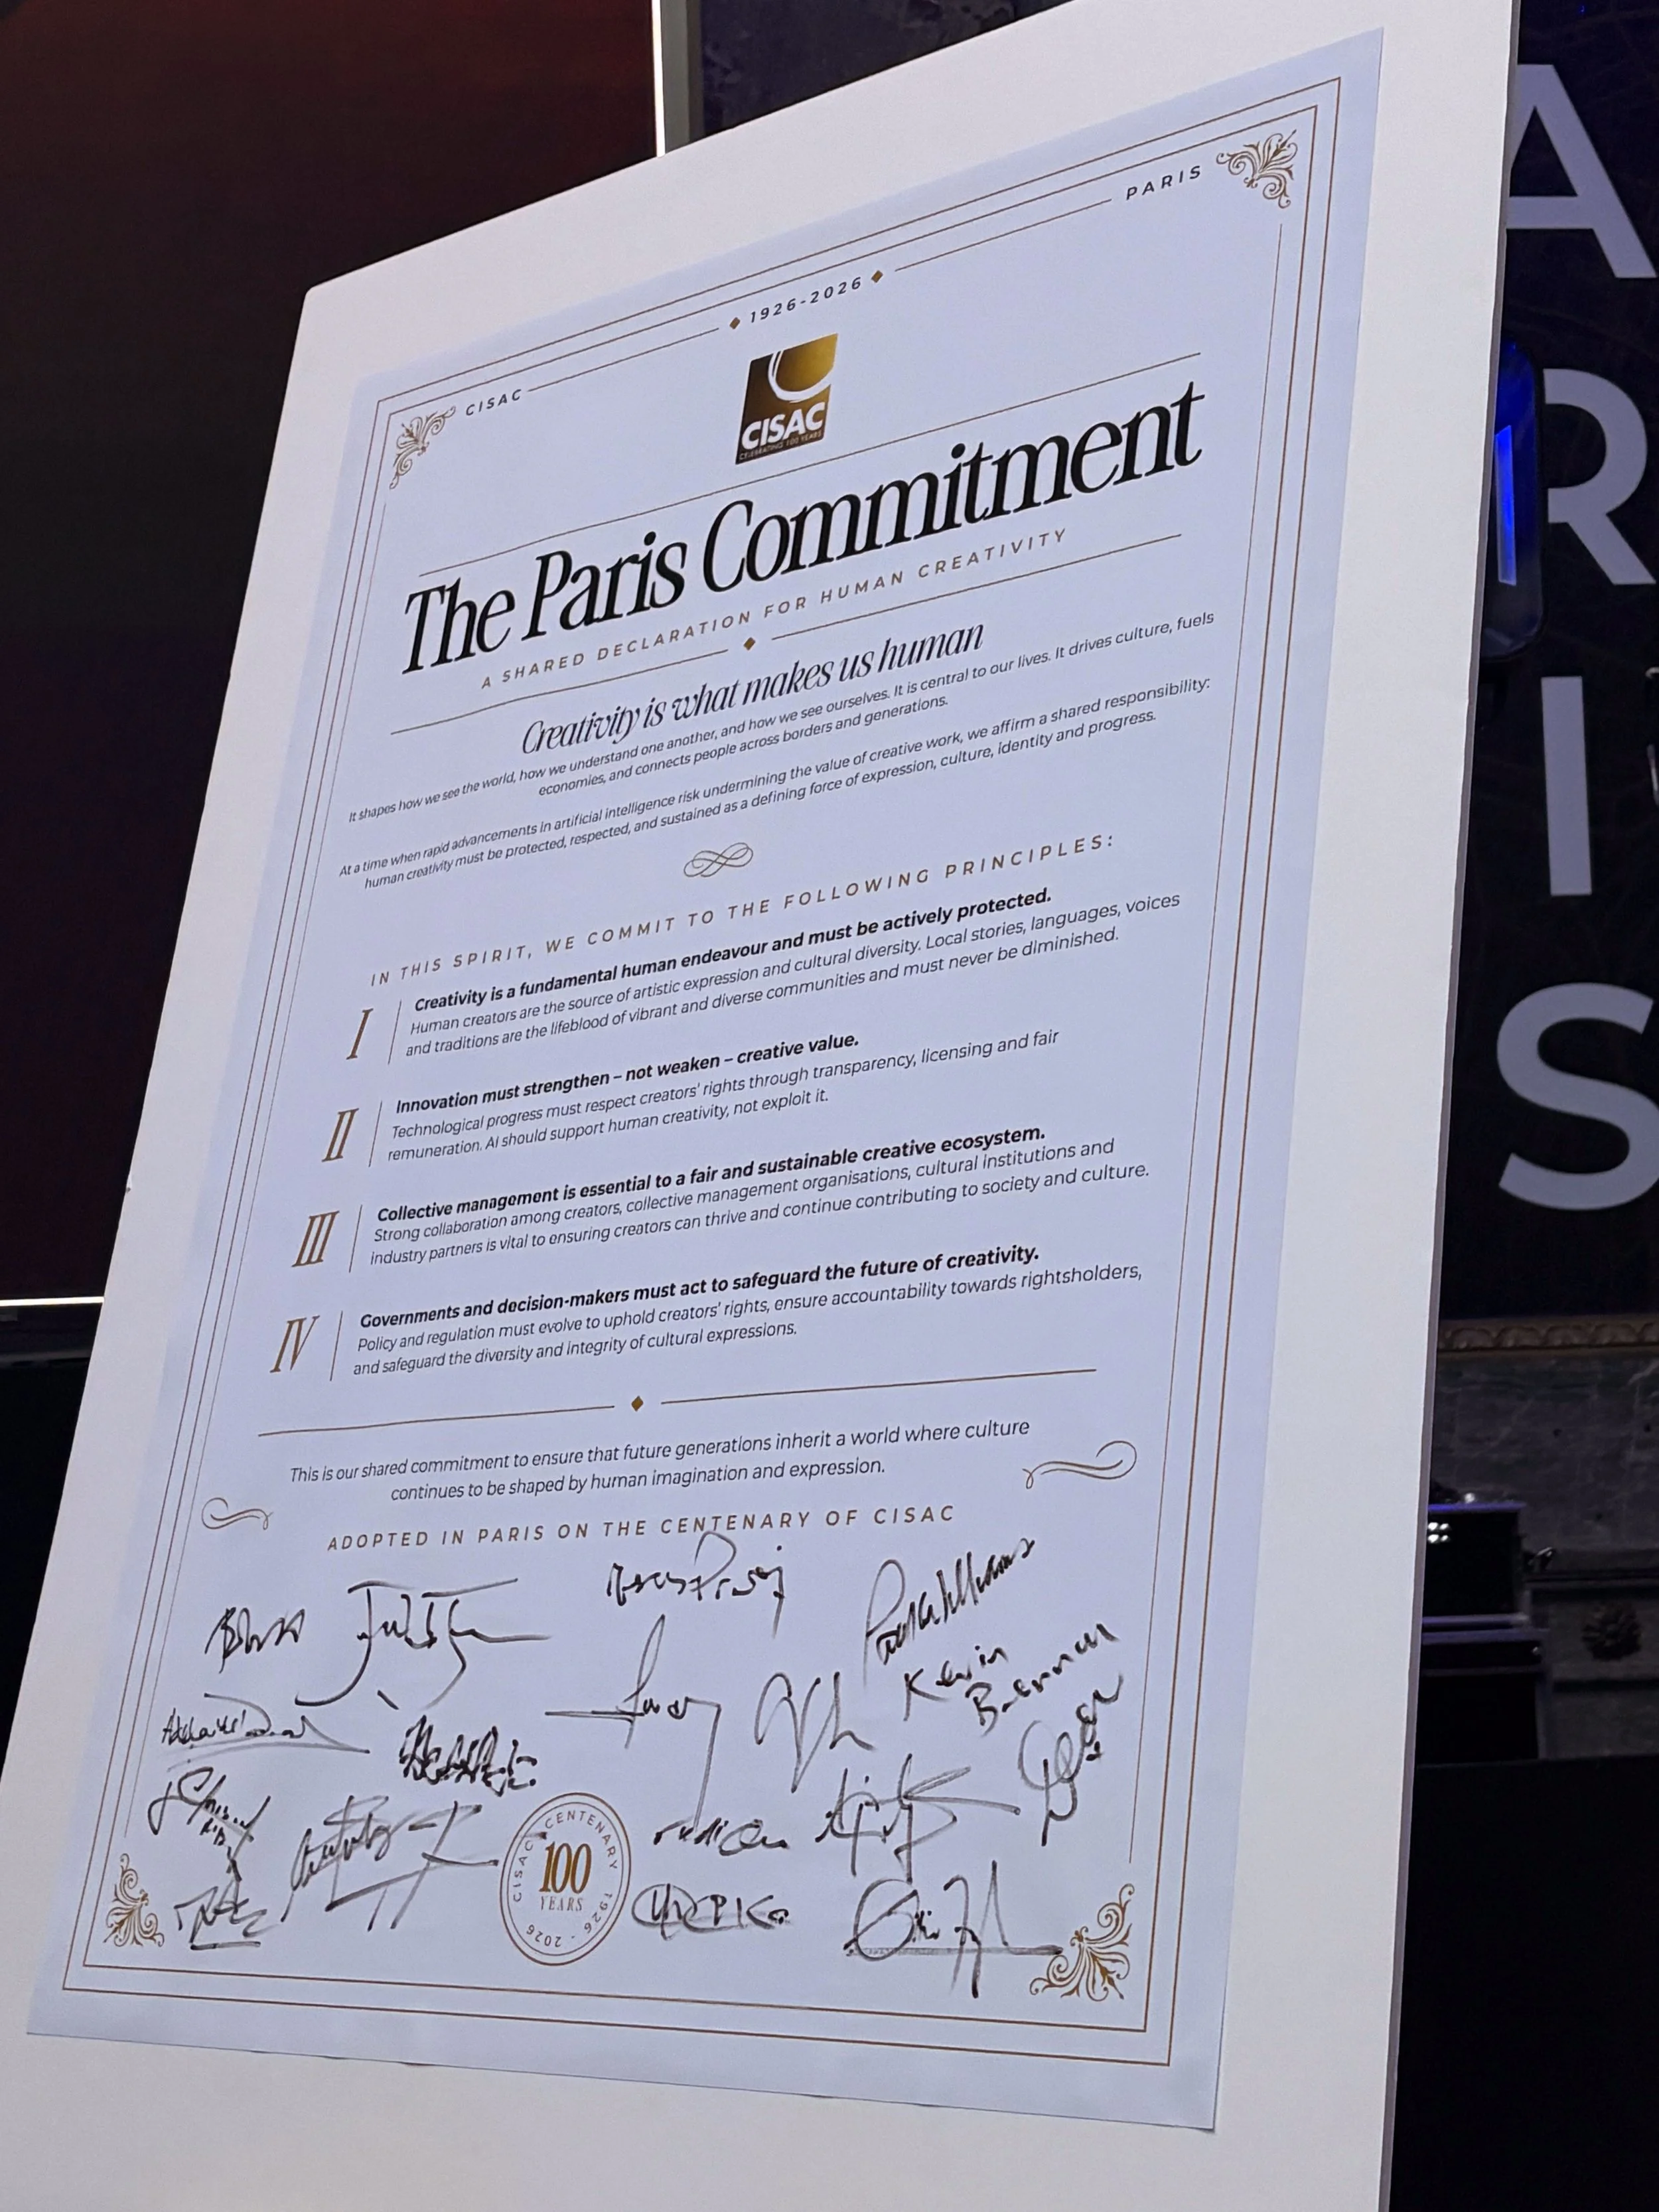 CISAC
1926-2026
PARIS
CISAC
CELEBRATING 100 YEARS
The Paris Commitment
A SHARED DECLARATION FOR HUMAN CREATIVITY
Creativity is what makes us human
It shapes how we see the world, how we understand one another, and how we see ourselves. It is central to our lives. It drives culture, fuels
economies, and connects people across borders and generations.
At a time when rapid advancements in artificial intelligence risk undermining the value of creative work, we affirm a shared responsibility:
human creativity must be protected, respected, and sustained as a defining force of expression, culture, identity and progress.
IN THIS SPIRIT, WE COMMIT TO THE FOLLOWING PRINCIPLES:
I
Creativity is a fundamental human endeavour and must be actively protected.
Human creators are the source of artistic expression and cultural diversity. Local stories, languages, voices
and traditions are the lifeblood of vibrant and diverse communities and must never be diminished.
II
Innovation must strengthen – not weaken – creative value.
Technological progress must respect creators' rights through transparency, licensing and fair
remuneration. AI should support human creativity, not exploit it.
III
Collective management is essential to a fair and sustainable creative ecosystem.
Strong collaboration among creators, collective management organisations, cultural institutions and
industry partners is vital to ensuring creators can thrive and continue contributing to society and culture.
IV
Governments and decision-makers must act to safeguard the future of creativity.
Policy and regulation must evolve to uphold creators' rights, ensure accountability towards rightsholders,
and safeguard the diversity and integrity of cultural expressions.
This is our shared commitment to ensure that future generations inherit a world where culture
continues to be shaped by human imagination and expression.
ADOPTED IN PARIS ON THE CENTENARY OF CISAC
Kevin
CISAC CENTENARY
100
YEARS
1926 - 2026
A
R
I
S